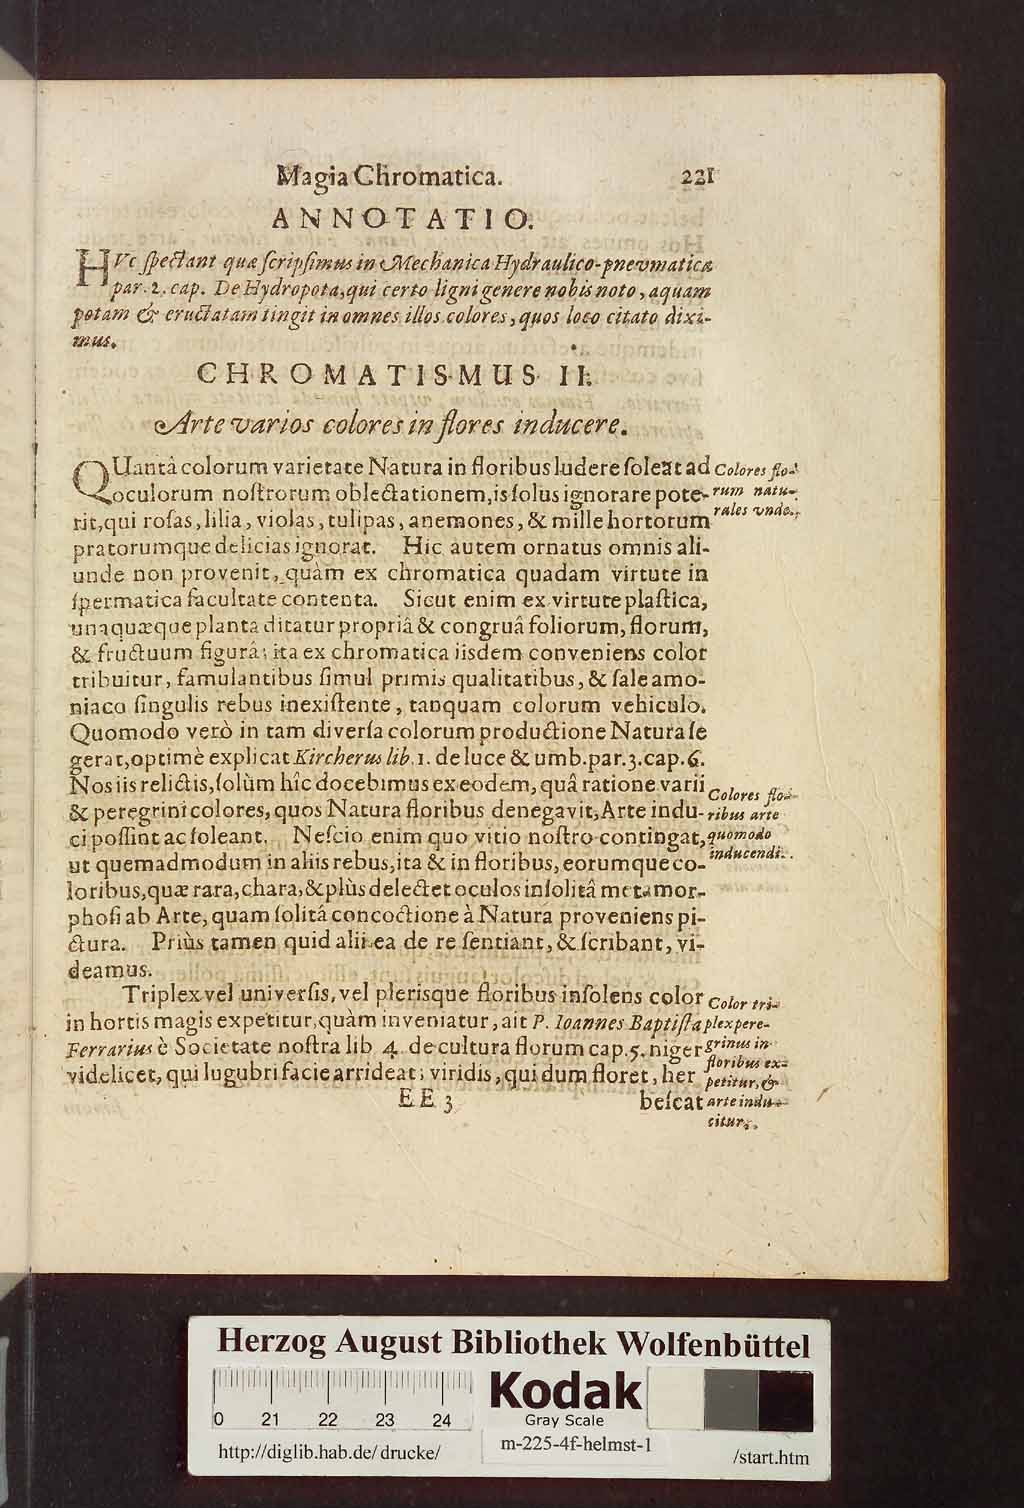 Magia Chromatica. 221
ANNOTATIO.
HVc ſpectant quæ ſcripſimus in Mechanica Hydraulico-pnevmatica
par. 2. cap. De Hydropota, qui certo ligni genere nobis noto, aquam
potam & eructatam tingit in omnes illos colores, quos loco citato dixi-
mus.
CHROMATISMUS II.
Arte varios colores in flores inducere.
QUantâ colorum varietate Natura in floribus ludere ſoleat ad
oculorum noſtrorum oblectationem, is ſolus ignorare pote-
rit, qui roſas, lilia, violas, tulipas, anemones, & mille hortorum
pratorumque delicias ignorat. Hic autem ornatus omnis ali-
unde non provenit, quàm ex chromatica quadam virtute in
ſpermatica facultate contenta. Sicut enim ex virtute plaſtica,
unaquæque planta ditatur propriâ & congruâ foliorum, florum,
& fructuum figurâ; ita ex chromatica iisdem conveniens color
tribuitur, famulantibus ſimul primis qualitatibus, & ſale amo-
niaco ſingulis rebus inexiſtente, tanquam colorum vehiculo.
Quomodo verò in tam diverſa colorum productione Natura ſe
gerat, optimè explicat Kircherus lib. 1. de luce & umb. par. 3. cap. 6.
Nos iis relictis, ſolùm hîc docebimus ex eodem, quâ ratione varii
& peregrini colores, quos Natura floribus denegavit, Arte indu-
ci poſſint ac ſoleant. Neſcio enim quo vitio noſtro contingat,
ut quemadmodum in aliis rebus, ita & in floribus, eorumque co-
loribus, quæ rara, chara, & plùs delectet oculos inſolitâ metamor-
phoſi ab Arte, quam ſolitâ concoctione à Natura proveniens pi-
ctura. Priùs tamen quid alii ea de re ſentiant, & ſcribant, vi-
deamus.
Triplex vel univerſis, vel plerisque floribus inſolens color
in hortis magis expetitur, quàm inveniatur, ait P. Ioannes Baptiſta
Ferrarius è Societate noſtra lib 4. de cultura florum cap. 5. niger
videlicet, qui lugubri facie arrideat; viridis, qui dum floret, her
EE 3 beſcat
Colores flo-
rum natu-
rales vnde.
Colores flo-
ribus arte
quomodo
inducendi.
Color tri-
plex pere-
grinus in
floribus ex-
petitur, &
arte indu-
citur.
Herzog August Bibliothek Wolfenbüttel
0 21 22 23 24
Kodak
Gray Scale
http://diglib.hab.de/drucke/
m-225-4f-helmst-1
/start.htm